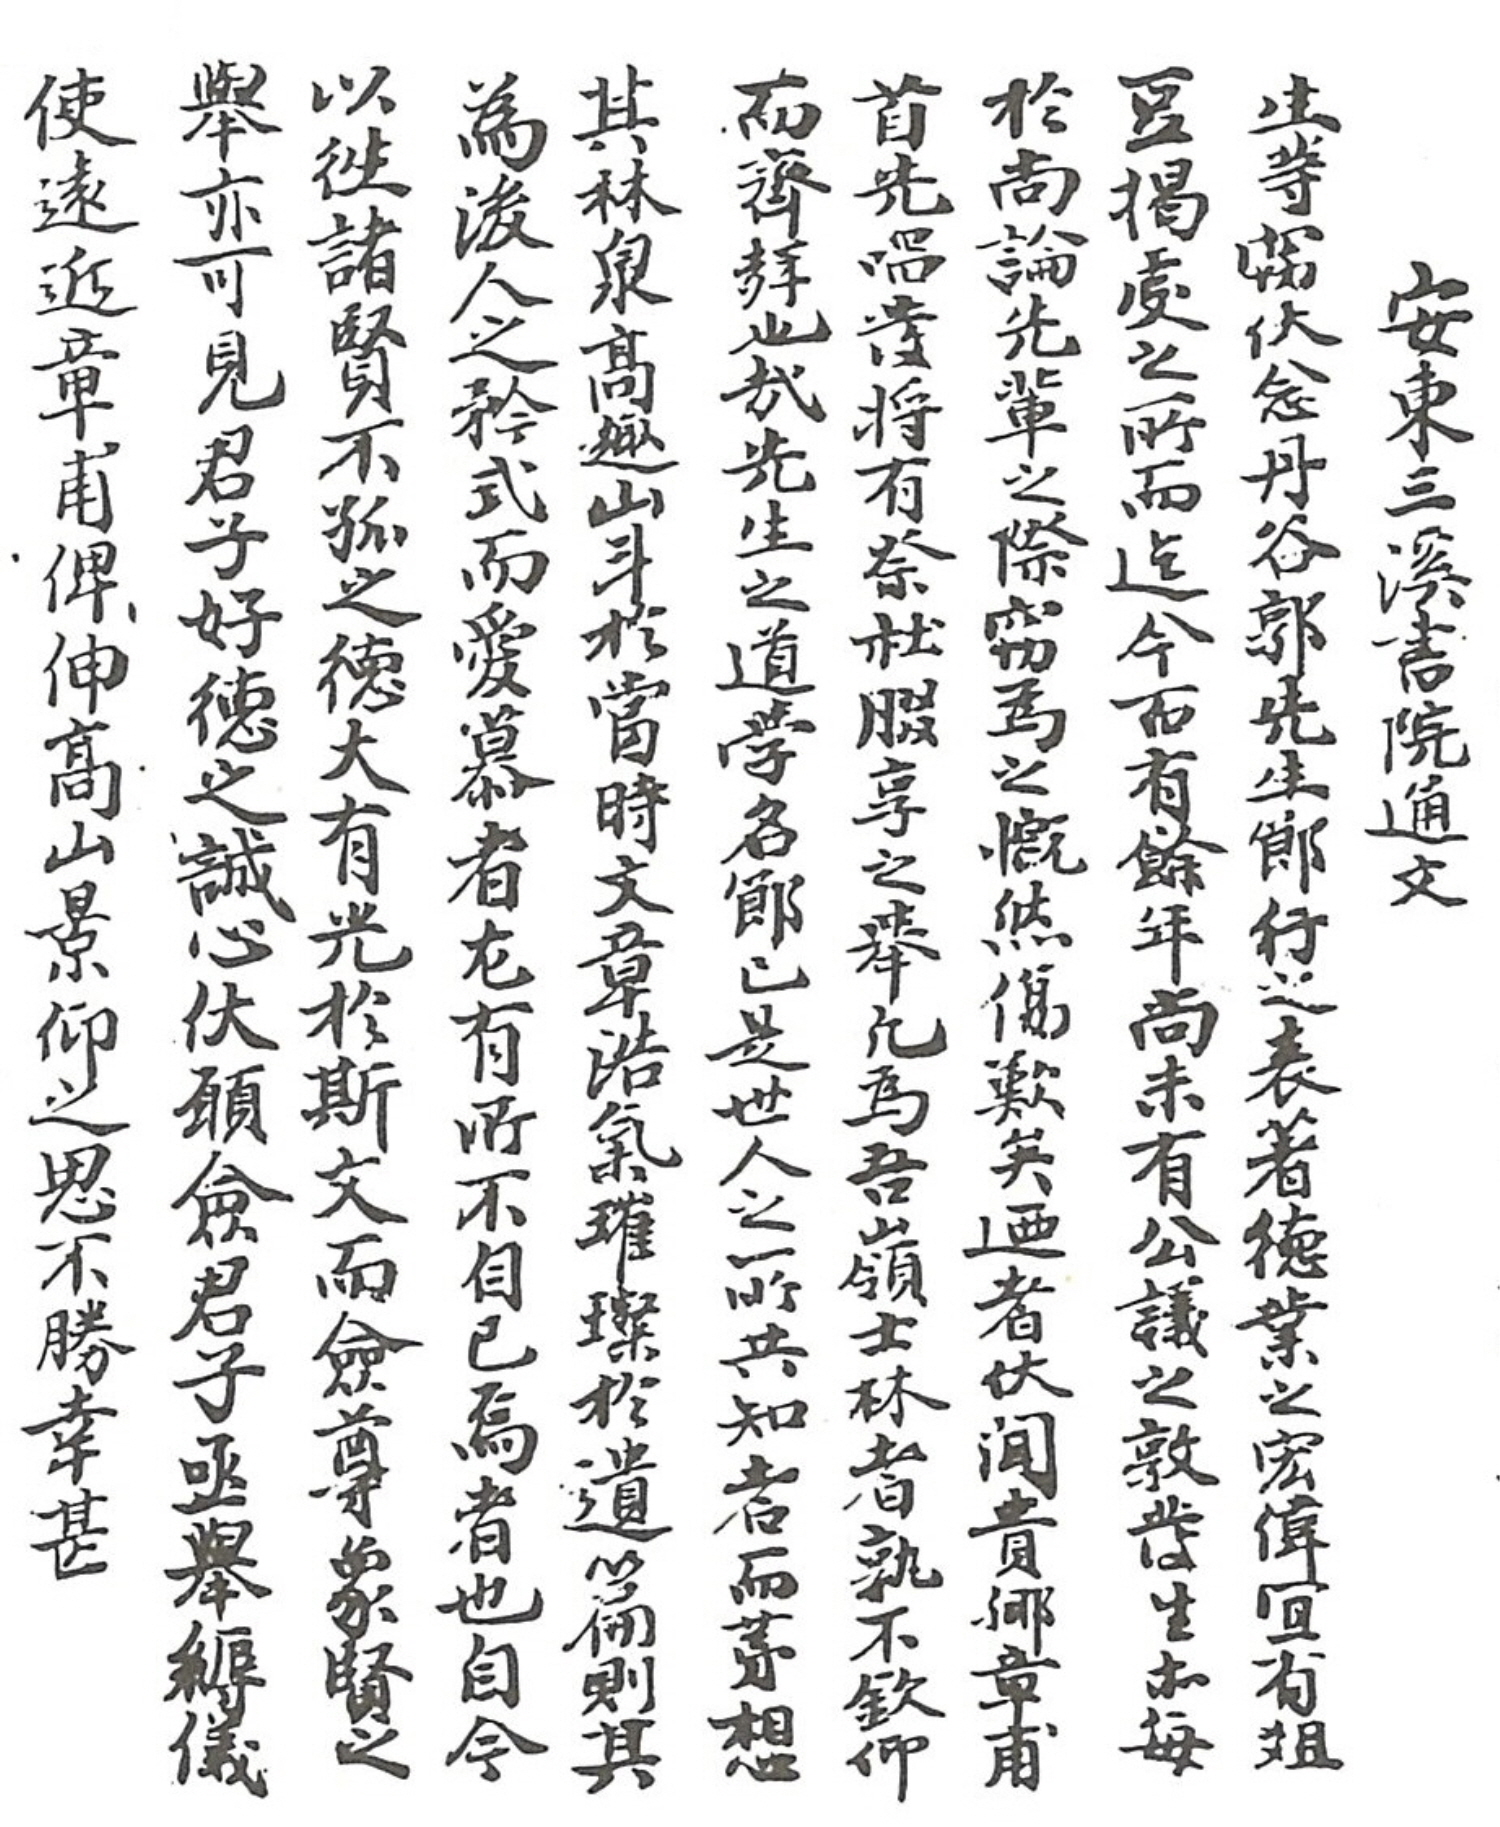 安東三溪書院通文
生等竊伏念丹谷郭先生節行之表著德業之宏偉宜有俎
豆揭虔之所而迄今百有餘年尚未有公議之敦發生等每
於尚論先輩之際窃爲之慨然傷歎矣迺者伏聞貴鄉章甫
首先唱發將有祭社腏享之擧凡爲吾嶺士林者孰不欽仰
而齊聲也哉先生之道學名節已是世人之所共知者而第想
其林泉高趣山斗於當時文章浩氣璀璨於遺篇則其
爲後人之矜式而愛慕者尤有所不自已焉者也自今
以徃諸賢不孤之德大有光於斯文而僉尊象賢之
擧亦可見君子好德之誠心伏願僉君子亟擧縟儀
使遠近章甫俾伸高山景仰之思不勝幸甚